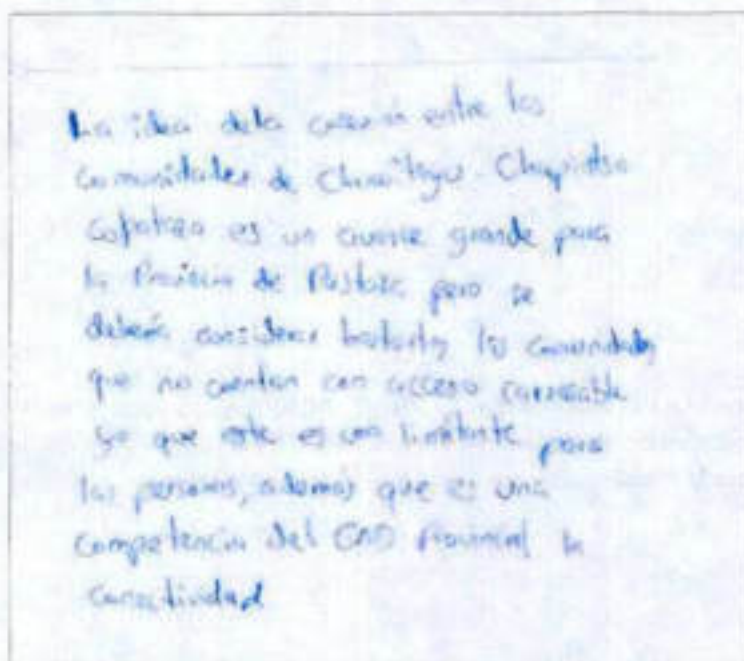 La idea dela conexión entre las
comunidades de Chuwitayo - Chapintsa
Copataza es un avance grande para
la Provincia de Pastaza pero se
debería considerar bastante las comunidades
que no cuentan con acceso carrozable
ya que este es una limitante para
las personas, además que es una
competencia del GAD Provincial la
conectividad